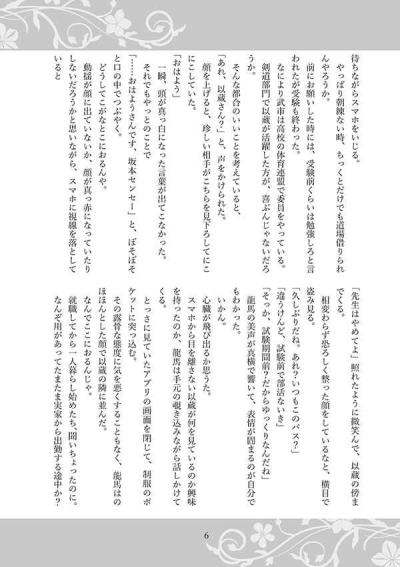 待ちながらスマホをいじる。
やっぱり朝練ない時、ちっくとだけでも道場借りられ
んやろうか。
前にお願いした時には、受験前くらいは勉強しろと言
われたが受験も終わった。
なにより武市は高校の体育連盟で委員をやっている。
剣道部門で以蔵が活躍した方が、喜ぶんじゃないだろ
うか。
そんな都合のいいことを考えていると、
「あれ、以蔵さん？」と、声をかけられた。
顔を上げると、珍しい相手がこちらを見下ろしてにこ
にこしていた。
「おはよう」
一瞬、頭が真っ白になった言葉が出てこなかった。
それでもやっとのことで
「おはようさんです、坂本センセー」と、ぼそぼそ
と口の中でつぶやく。
どうしてこがなとこにおるんや。
動揺が顔に出ていないか、顔が真っ赤になっていたり
しないだろうかと思いながら、スマホに視線を落として
いると
「先生はやめてよ」照れたように微笑んで、以蔵の傍ま
でくる。
相変わらず恐ろしく整った顔をしているなと、横目で
盗み見る。
「久しぶりだね。あれ？いつもこのバス？」
「違うけんど、試験前で部活ないき」
「そっか、試験期間前？だからゆっくりなんだね」
龍馬の美声が真横で響いて、表情が固まるのが自分で
もわかった。
いかん。
心臓が飛び出るか思うた。
スマホから目を離さない以蔵が何を見ているのか興味
を持ったのか、龍馬は手元の覗き込みながら話しかけて
くる。
とっさに見ていたアプリの画面を閉じて、制服のポ
ケットに突っ込む。
その露骨な態度に気を悪くすることもなく、龍馬はの
ほほんとした顔で以蔵の隣に並んだ。
なんでここにおるんじゃ。
就職してから一人暮らし始めたち、聞いちょったのに。
なんぞ用があってたまたま実家から出勤する途中か？
6